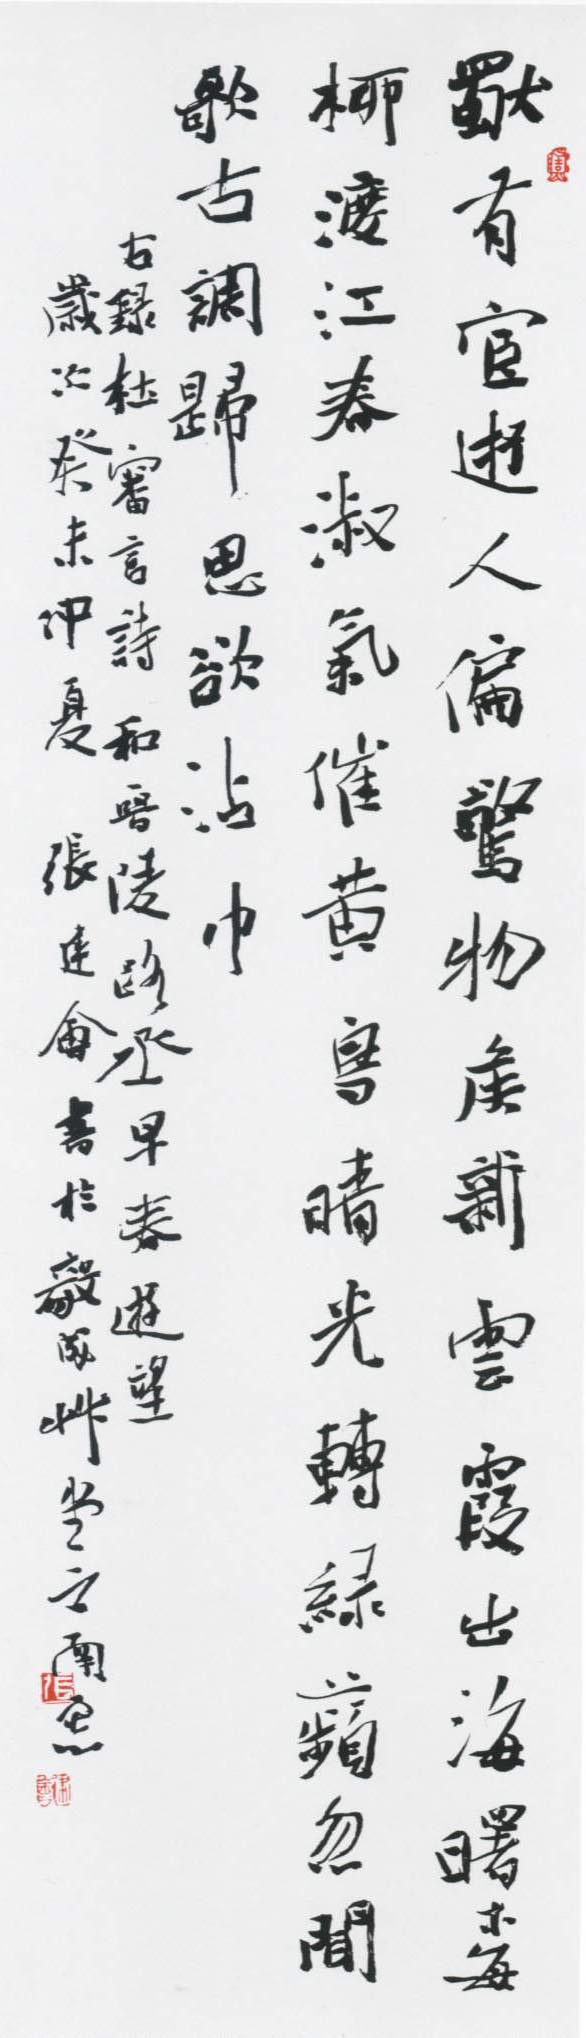 獨有宦遊人偏驚物候新雲霞出海曙梅
柳渡江春淑氣催黃鳥晴光轉綠蘋忽聞
歌古調歸思欲沾巾
右錄杜審言詩和晉陵路丞早春遊望
歲次癸未仲夏 張建會書於毅成艸堂之南窓